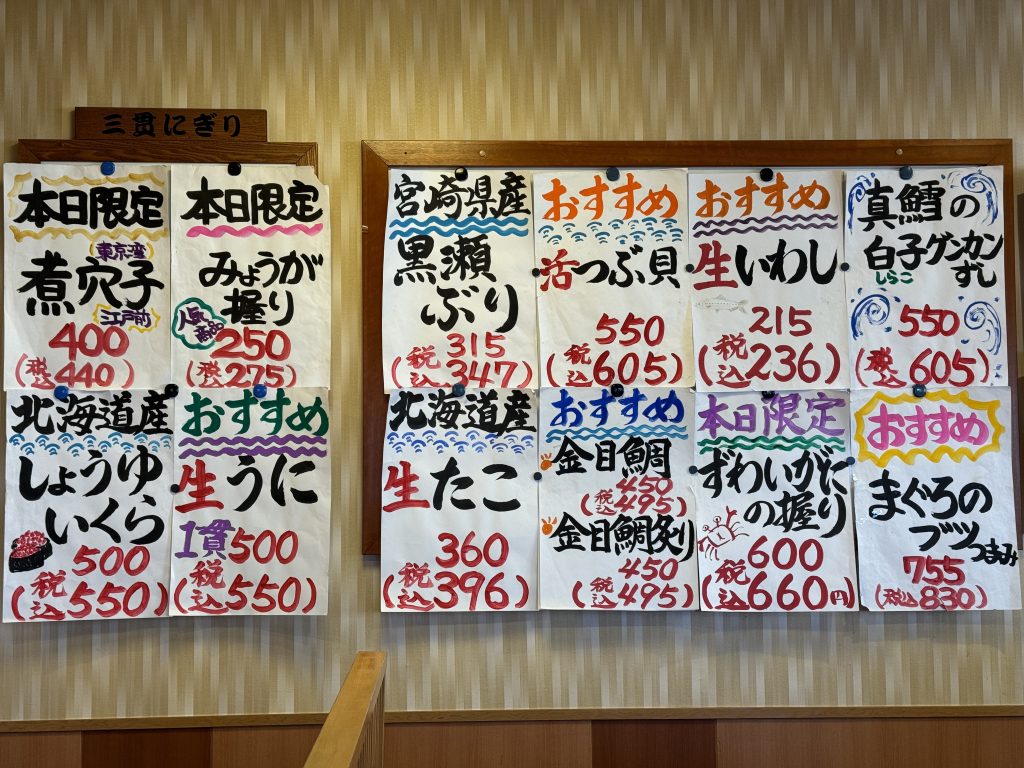 三貫にぎり
本日限定
東京湾
煮穴子
江戸前
400
(税込440)
本日限定
みょうが
握り
人気商品
250
(税込275)
宮崎県産
黒瀬
ぶり
315
(税込347)
おすすめ
活つぶ貝
550
(税込605)
おすすめ
生いわし
215
(税込236)
真鱈の
白子グンカン
しらこ
ずし
550
(税込605)
北海道産
しょうゆ
いくら
500
(税込550)
おすすめ
生うに
1貫500
(税込550)
北海道産
生たこ
360
(税込396)
おすすめ
金目鯛
450
(税込495)
金目鯛炙り
450
(税込495)
本日限定
ずわいがに
の握り
600
(税込660円)
おすすめ
まぐろの
ブツ
つまみ
755
(税込830)